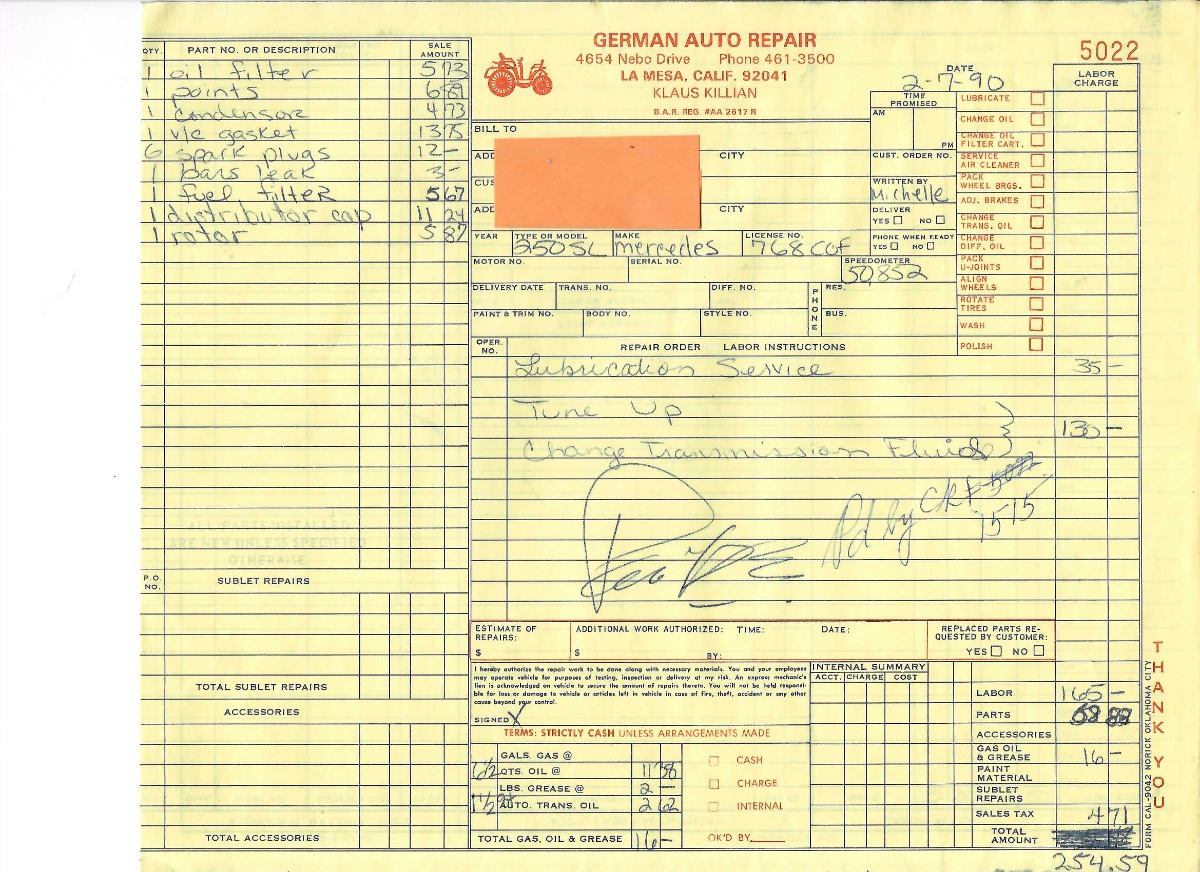 GERMAN AUTO REPAIR
4654 Nebo Drive Phone 461-3500
LA MESA, CALIF. 92041
KLAUS KILLIAN
B.A.R. REG. #AA 2617 R
5022
DATE 2-7-90
QTY. PART NO. OR DESCRIPTION SALE AMOUNT
1 oil filter 5 73
1 points
1 condensore 4 73
1 v/c gasket 13 75
6 spark plugs 12 —
1 bars leak 3 —
1 fuel filter 5 67
1 distributor cap 11 24
1 rotor 5 87
ALL PARTS INSTALLED
ARE NEW UNLESS SPECIFIED
OTHERWISE
P.O. NO. SUBLET REPAIRS
TOTAL SUBLET REPAIRS
ACCESSORIES
TOTAL ACCESSORIES
BILL TO
ADD CITY
CUS
ADD CITY
TIME PROMISED
AM
PM
CUST. ORDER NO.
WRITTEN BY
Michelle
DELIVER
YES NO
PHONE WHEN READY
YES NO
YEAR TYPE OR MODEL MAKE LICENSE NO.
350SL mercedes
MOTOR NO. SERIAL NO. SPEEDOMETER
50,852
DELIVERY DATE TRANS. NO. DIFF. NO. PHONE RES.
PAINT & TRIM NO. BODY NO. STYLE NO. BUS.
LABOR CHARGE
LUBRICATE
CHANGE OIL
CHANGE OIL FILTER CART.
SERVICE AIR CLEANER
PACK WHEEL BRGS.
ADJ. BRAKES
CHANGE TRANS. OIL
CHANGE DIFF. OIL
PACK U-JOINTS
ALIGN WHEELS
ROTATE TIRES
WASH
POLISH
OPER. NO. REPAIR ORDER LABOR INSTRUCTIONS
Lubrication Service 35 —
Tune Up
130 —
Change Transmission Fluid
Pd by CK#
1515
ESTIMATE OF REPAIRS: $
ADDITIONAL WORK AUTHORIZED: TIME: DATE:
$ BY:
REPLACED PARTS REQUESTED BY CUSTOMER:
YES NO
I hereby authorize the repair work to be done along with necessary materials. You and your employees
may operate vehicle for purposes of testing, inspection or delivery at my risk. An express mechanic's
lien is acknowledged on vehicle to secure the amount of repairs thereto. You will not be held responsi-
ble for loss or damage to vehicle or articles left in vehicle in case of fire, theft, accident or any other
cause beyond your control.
SIGNED X
TERMS: STRICTLY CASH UNLESS ARRANGEMENTS MADE
GALS. GAS @
6 1/2 QTS. OIL @ 11 38
LBS. GREASE @ 2 —
1 1/2 qt AUTO. TRANS. OIL 2 62
TOTAL GAS, OIL & GREASE 16 —
CASH
CHARGE
INTERNAL
OK'D BY
INTERNAL SUMMARY
ACCT. CHARGE COST
LABOR 165 —
PARTS
ACCESSORIES
GAS OIL & GREASE 16 —
PAINT MATERIAL
SUBLET REPAIRS
SALES TAX 4 71
TOTAL AMOUNT
254.59
THANK YOU
FORM CAL-9042 NORICK OKLAHOMA CITY